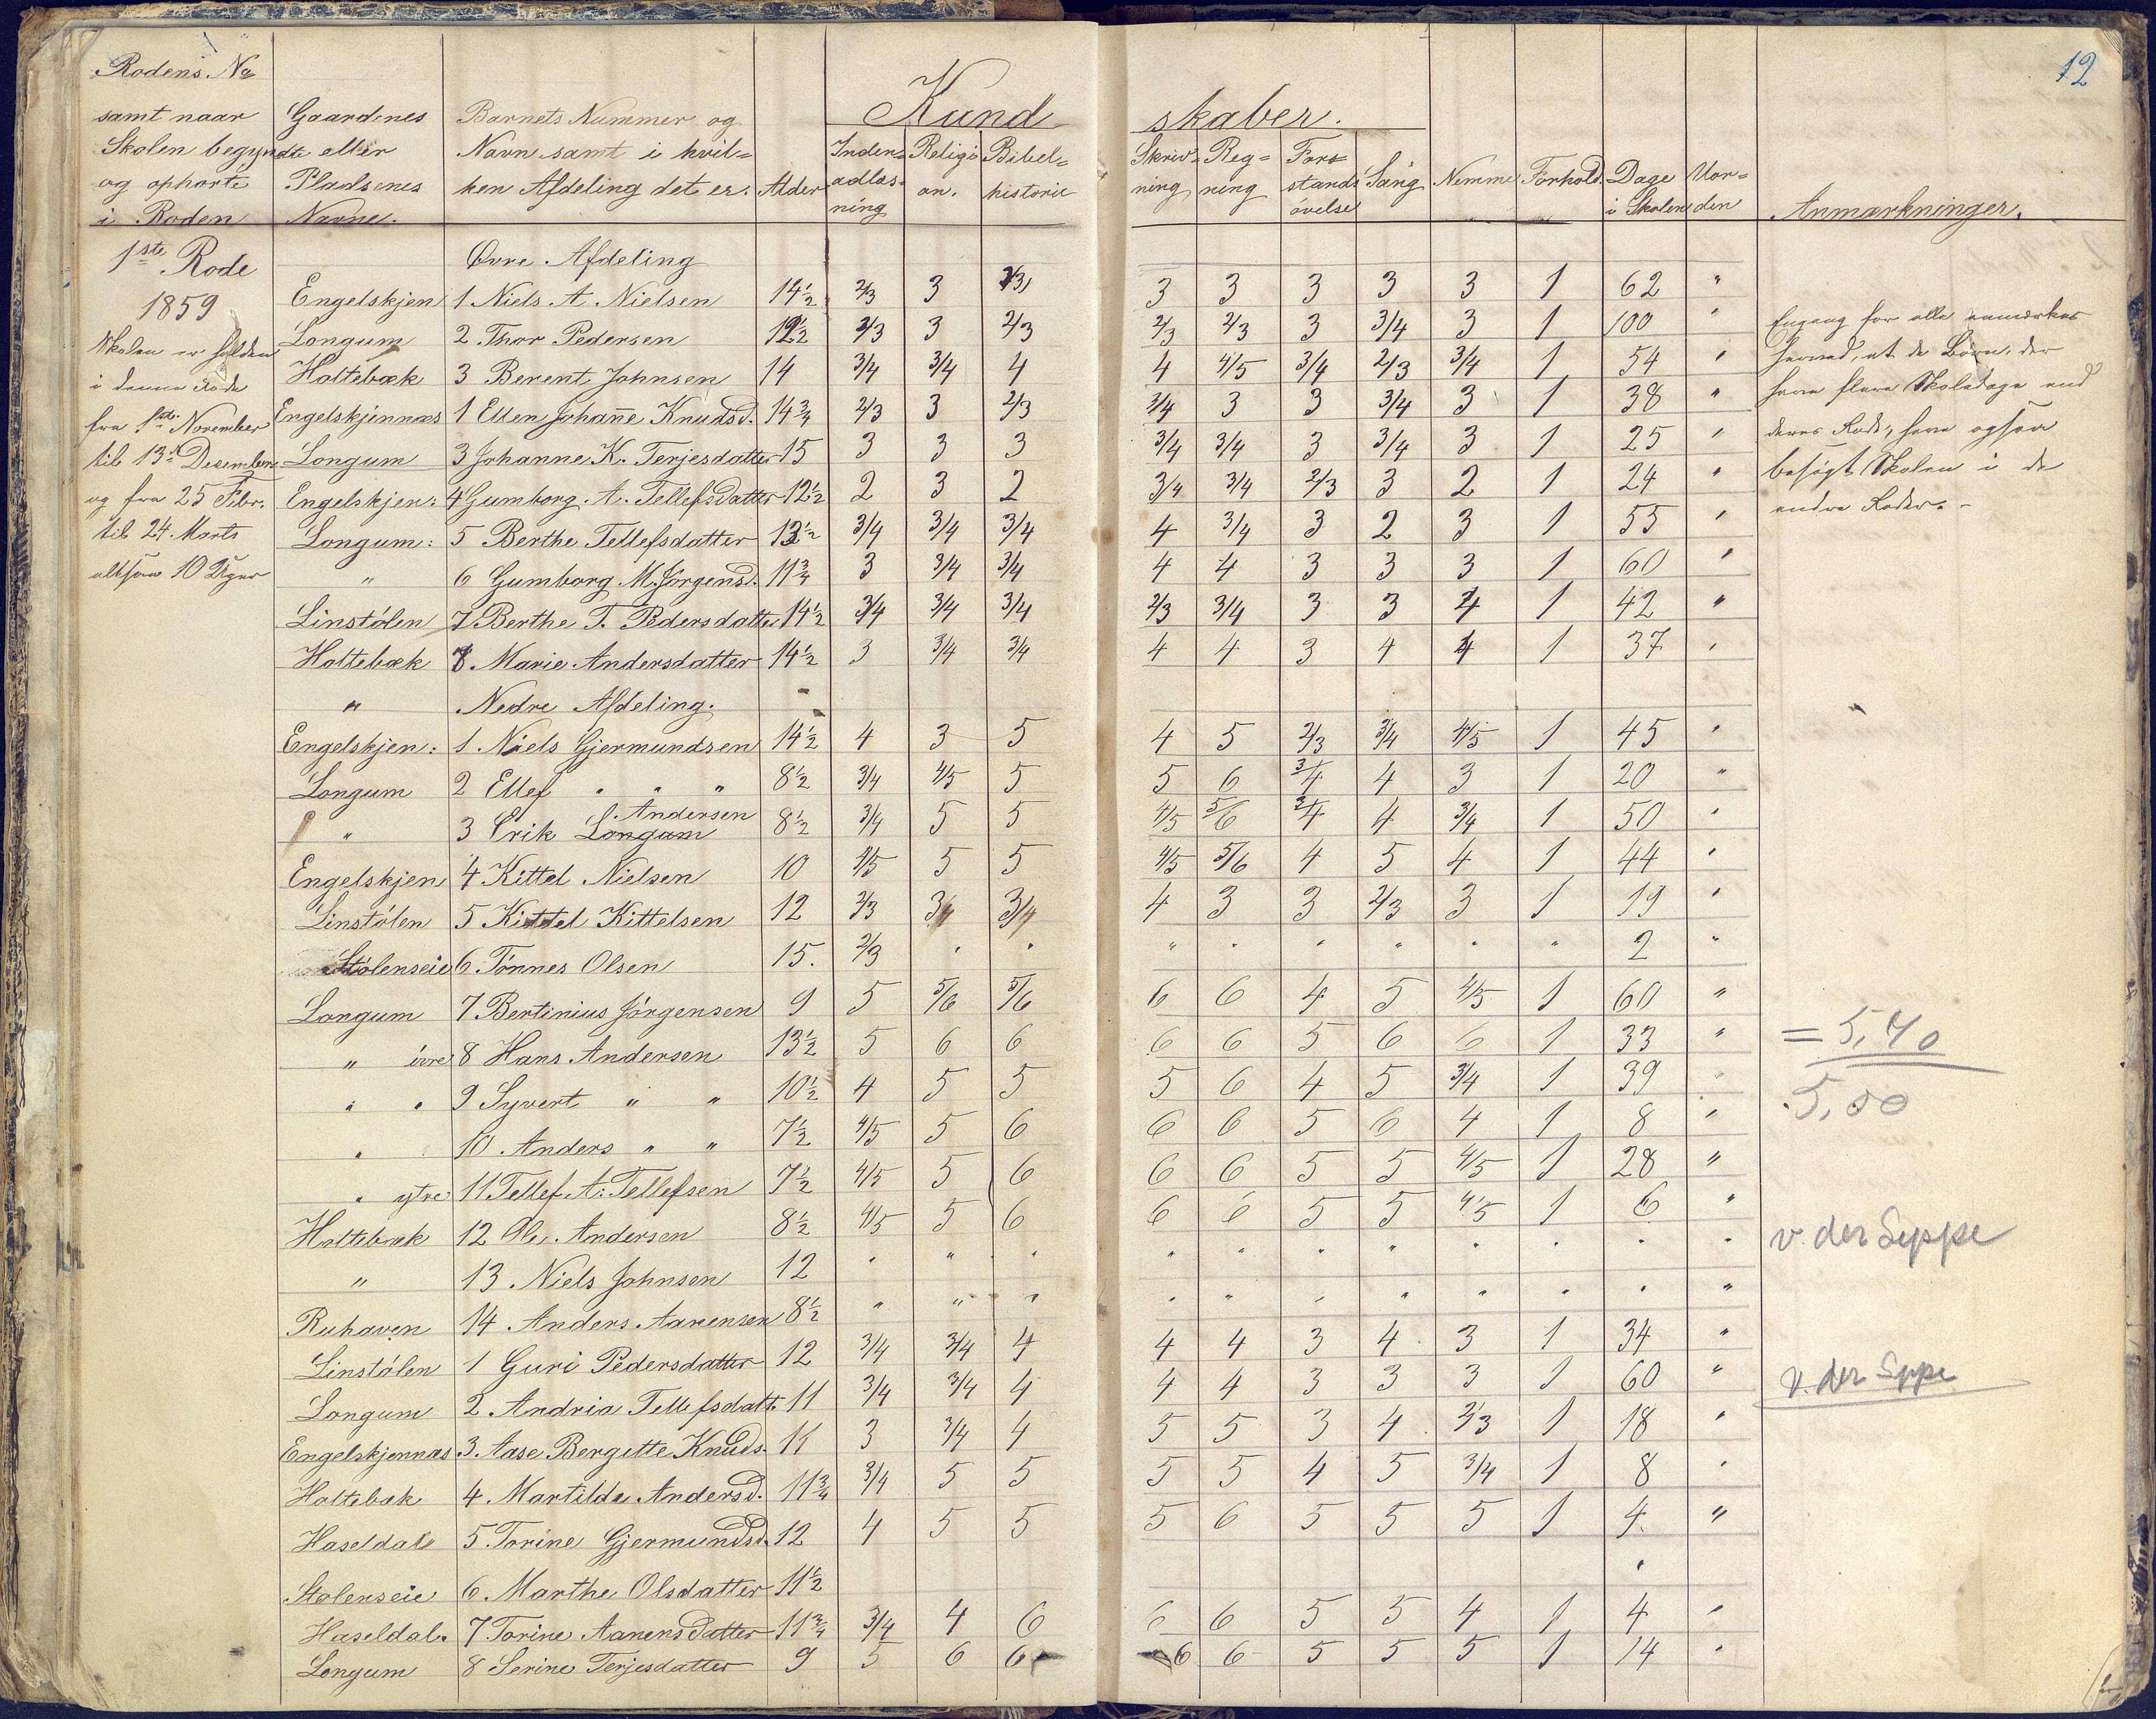 12
Rodens No
samt naar
Skolen begyndte
og ophørte
i Roden
Gaardenes
eller
Pladsenes
Navne.
Barnets Nummer og
Navn samt i hvil=
ken Afdeling det er.
Alder
Kund skaber.
Inden=
adlæs=
ning
Religi
on.
Bibel=
historie
Skriv=
ning
Reg=
ning
For=
stands
øvelse
Sang
Nemme
Forhold.
Dage
i Skolen
Vor=
den
Anmærkninger.
1ste Rode
1859
Skolen er holden
i denne Rode
fra 1ste November
til 13de Desember
og fra 25 Febr.
til 24 Marts
altsaa 10 Uger
Øvre Afdeling
Engelskjen 1 Niels A. Nielsen 14½ 2/3 3 2/3 3 3 3 3 3 1 62 "
Longum 2 Thor Pedersen 12½ 2/3 3 2/3 2/3 2/3 3 3/4 3 1 100 "
Holtebæk 3 Berent Johnsen 14 3/4 3/4 4 4 4/5 3/4 2/3 3/4 1 54 "
Engelskjennæs 1 Ellen Johanne Knudsd. 14¾ 2/3 3 2/3 3/4 3 3 3/4 3 1 38 "
Longum 3 Johanne K. Terjesdatter 15 3 3 3 3/4 3/4 3 3/4 3 1 25 "
Engelskjen: 4 Gumborg A. Tellefsdatter 12½ 2 3 2 3/4 3/4 2/3 3 2 1 24 "
Longum: 5 Berthe Tellefsdatter 13½ 3/4 3/4 3/4 4 3/4 3 2 3 1 55 "
" 6 Gumborg M. Jørgensd. 11¾ 3 3/4 3/4 4 4 3 3 3 1 60 "
Linstølen 7 Berthe T. Pedersdatter 14½ 3/4 3/4 3/4 2/3 3/4 3 3 4 1 42 "
Holtebæk 8 Marie Andersdatter 14½ 3 3/4 3/4 4 4 3 4 4 1 37 "
" Nedre Afdeling.
Engelskjen: 1 Niels Gjermundsen 14½ 4 3 5 4 5 2/3 3/4 4/5 1 45 "
Longum 2 Ellef " " " 8½ 3/4 4/5 5 5 6 3/4 4 3 1 20 "
Andersen
" 3 Erik Longum 8½ 3/4 5 5 4/5 5/6 3/4 4 3/4 1 50 "
Engelskjen 4 Kittel Nielsen 10 4/5 5 5 4/5 5/6 4 5 4 1 44 "
Linstølen 5 Kittel Kittelsen 12 2/3 3/4 3/4 4 3 3 2/3 3 1 19 "
Stølenseie 6 Tønnes Olsen 15. 2/3 " " " " " " " " 2 "
Longum 7 Bertinius Jørgensen 9 5 5/6 5/6 6 6 4 5 4/5 1 60 "
" øvre 8 Hans Andersen 13½ 5 6 6 6 6 5 6 6 1 33 "
" " 9 Syvert " " 10½ 4 5 5 5 6 4 5 3/4 1 39 "
" 10 Anders " " 7½ 4/5 5 6 6 6 5 6 4 1 8 "
" ytre 11 Tellef A: Tellefsen 7½ 4/5 5 6 6 6 5 5 4/5 1 28 "
Holtebæk 12 Ole Andersen 8½ 4/5 5 6 6 6 5 5 4/5 1 6 "
" 13 Niels Johnsen 12 " " " " " " " " " " "
Ruhaven 14 Anders Aanensen 8½ " " " " " " " " " " "
Linstølen 1 Guri Pedersdatter 12 3/4 3/4 4 4 4 3 4 3 1 34 "
Longum 2 Andria Tellefsdatt. 11 3/4 3/4 4 4 4 3 3 3 1 60 "
Engelskjennæs 3. Aase Bergitte Knuds. 11 3 3/4 4 5 5 3 4 2/3 1 18 "
Holtebæk 4. Martilde Andersd. 11¾ 3/4 5 5 5 5 4 5 3/4 1 8 "
Haseldal 5. Torine Gjermundsd. 12 4 5 5 5 6 5 5 5 1 4. "
Stølenseie 6. Marthe Olsdatter 11½ "
Haseldal. 7 Torine Aanensdatter 11¾ 3/4 4 6 6 6 5 5 4 1 4 "
Longum 8 Serine Terjesdatter 9 5 6 6 6 6 5 5 5 1 14 "
Engang for alle anmærkes
herved, at de Børn, der
have flere Skoledage end
deres Rode, have ogsaa
besøgt Skolen i de
andre Roder. -
= 5,40
5,00
v. der Lippe
v. der Lippe